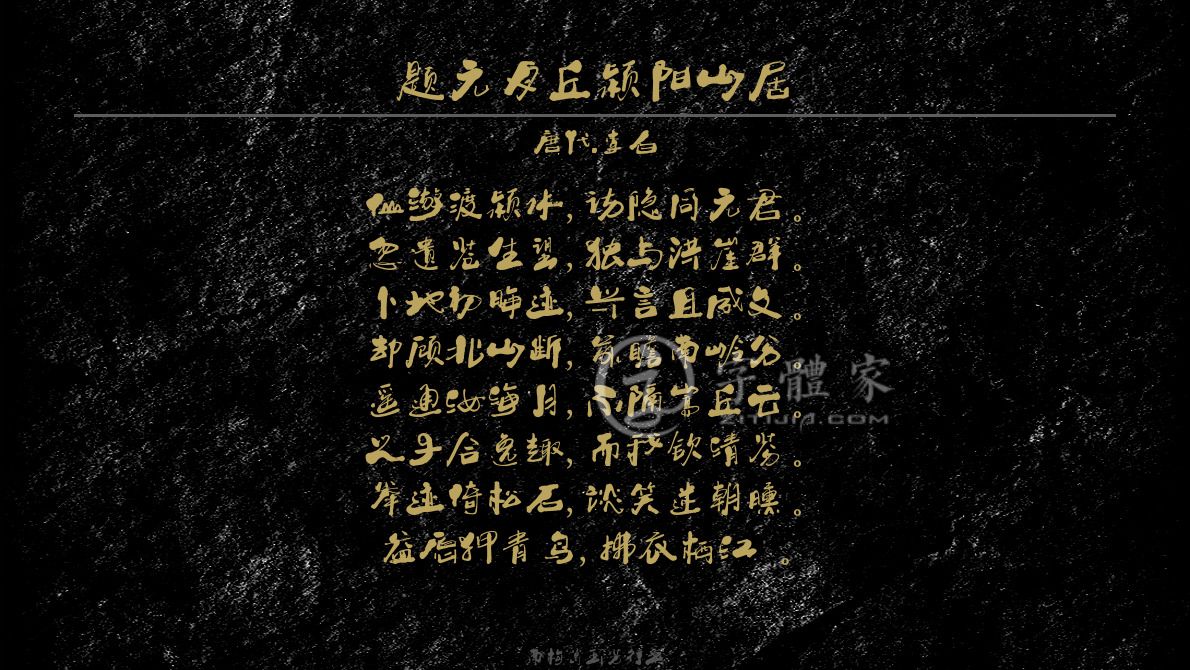 题元丹丘颍阳山居
唐代.李白
仙游渡颍水,访隐同元君。
忽遗苍生望,独与洪崖群。
卜地初晦迹,兴言且成文。
却顾北山断,前瞻南岭分。
遥通汝海月,不隔嵩丘云。
之子合逸趣,而我钦清芬。
举迹倚松石,谈笑迷朝曛。
益愿狎青鸟,拂衣栖江 。
字體家
ZITIJIA.COM